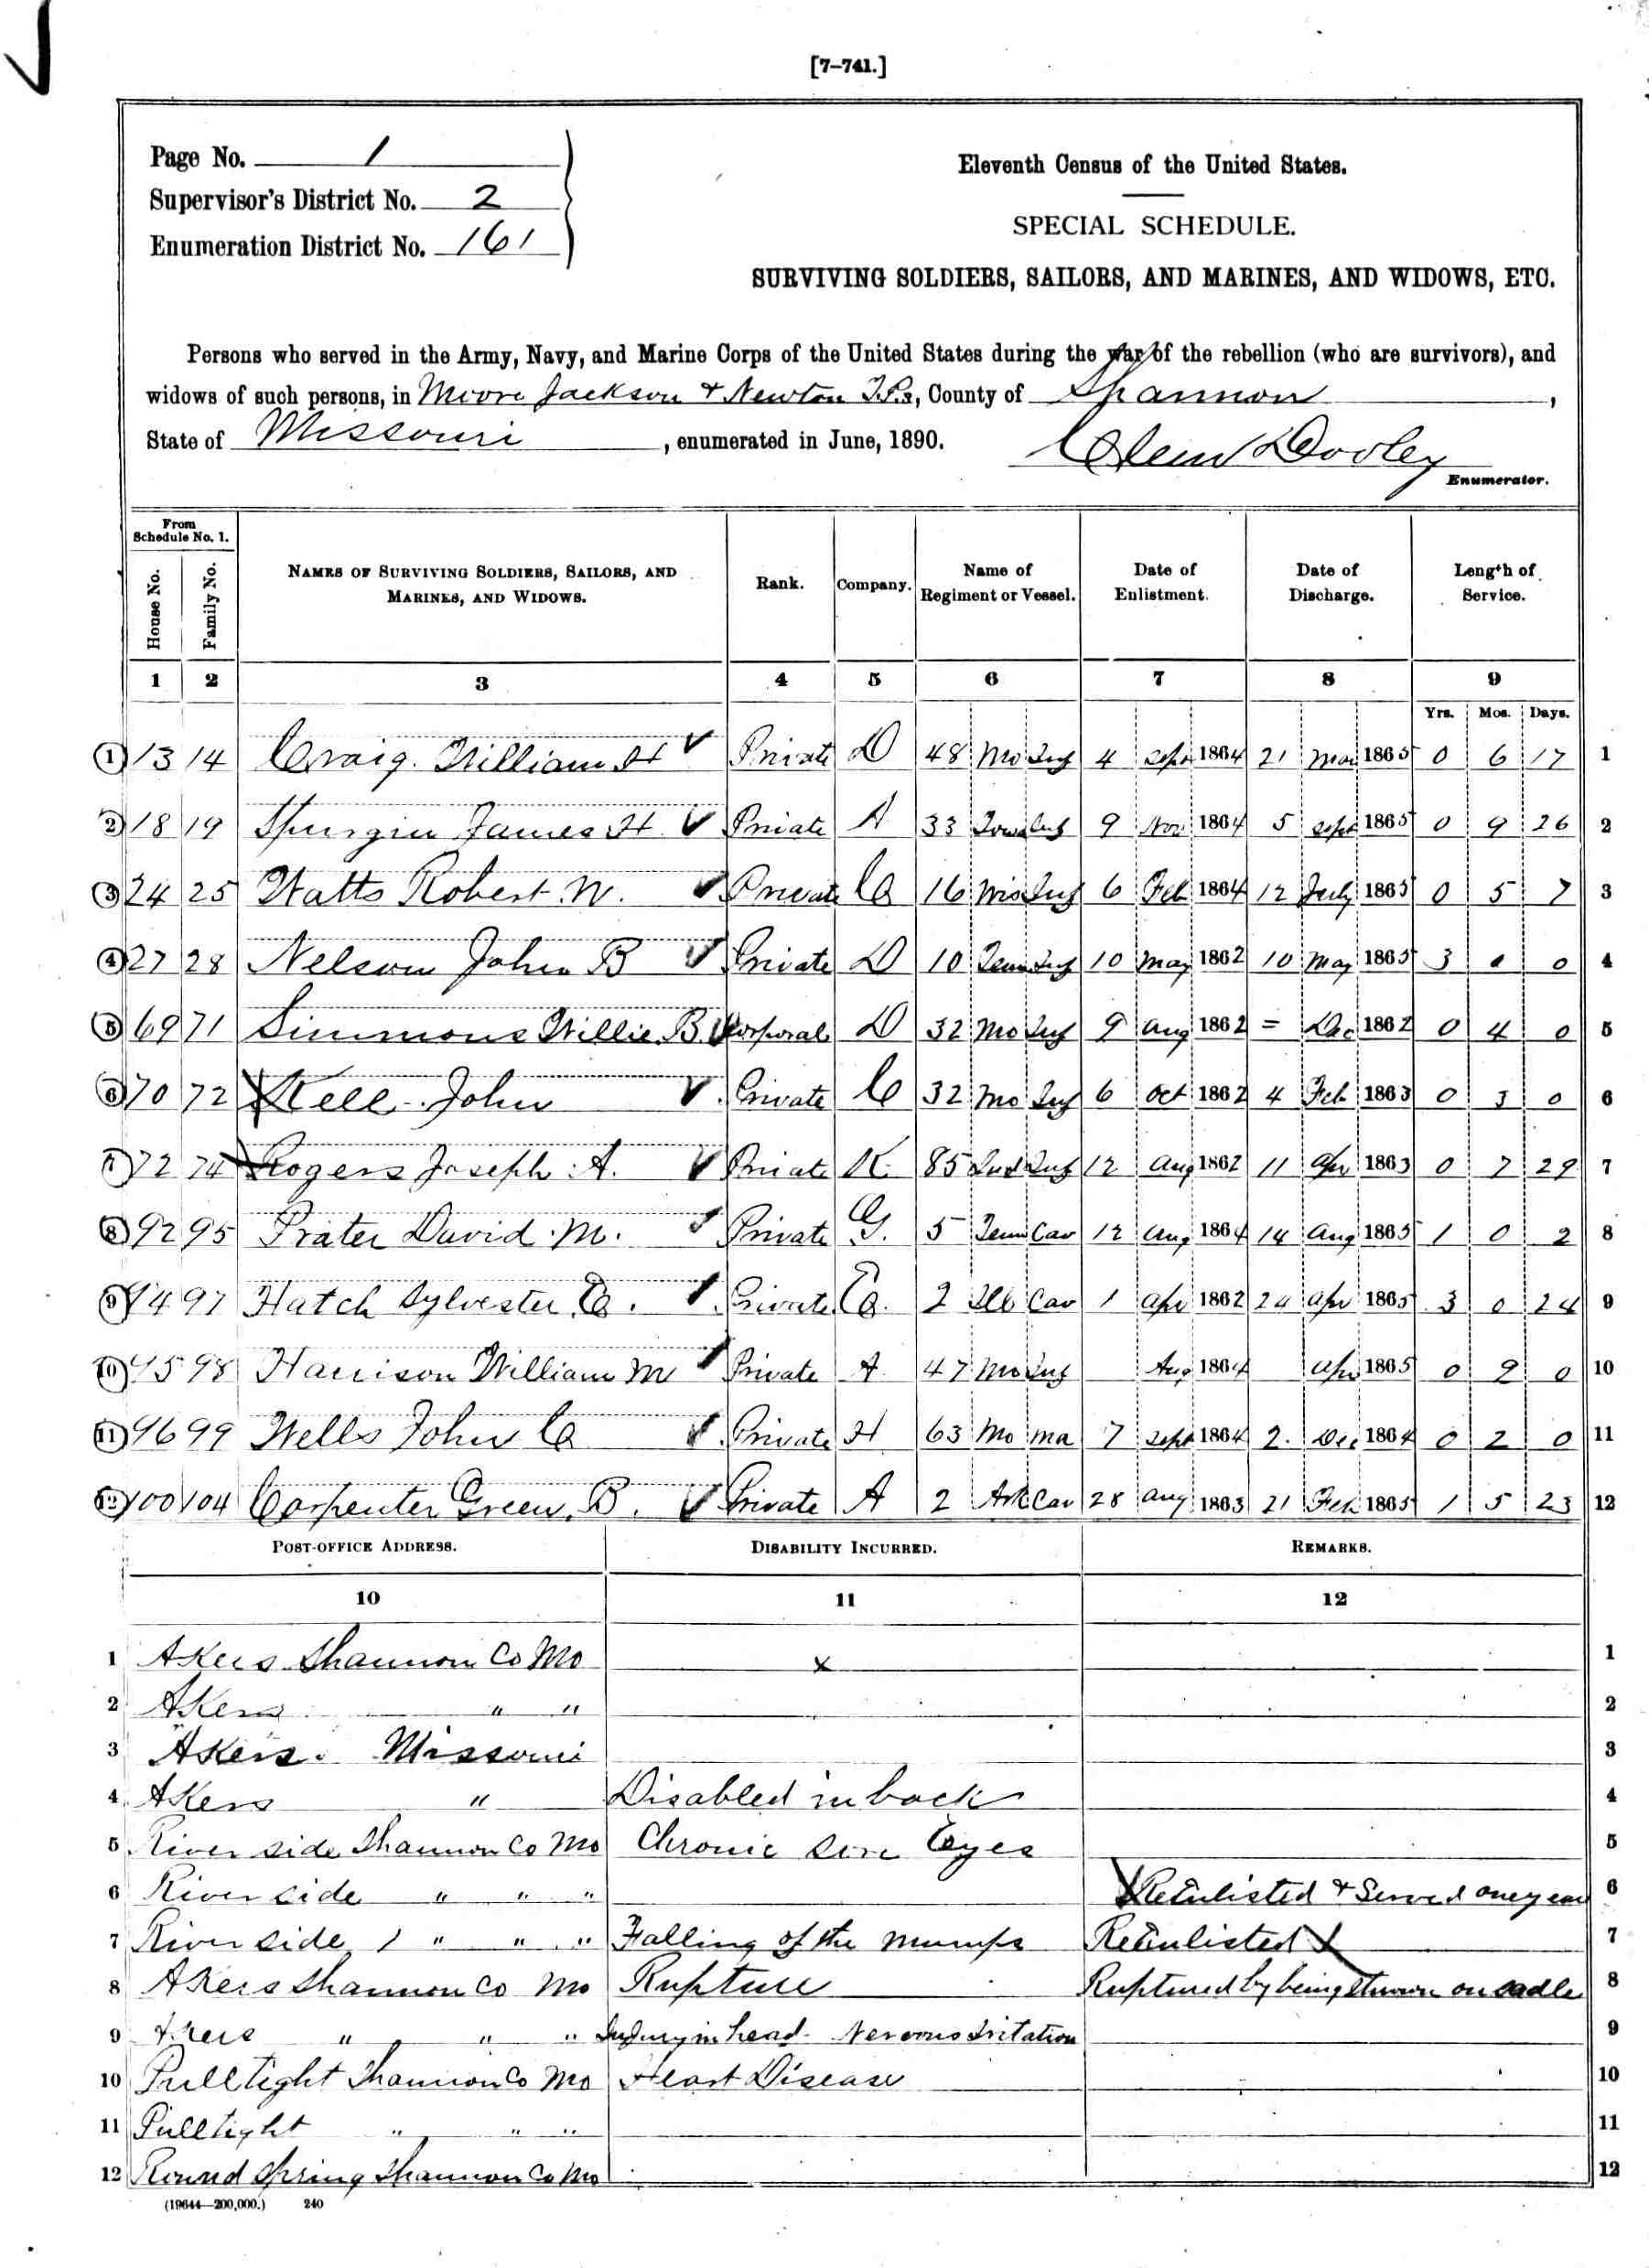 [7-741.]
Page No. 1
Supervisor's District No. 2
Enumeration District No. 161
Eleventh Census of the United States.
SPECIAL SCHEDULE.
SURVIVING SOLDIERS, SAILORS, AND MARINES, AND WIDOWS, ETC.
Persons who served in the Army, Navy, and Marine Corps of the United States during the war of the rebellion (who are survivors), and
widows of such persons, in Moore Jackson & Newton T.Ps, County of Shannon,
State of Missouri, enumerated in June, 1890. Clem Dooley
Enumerator.
From Schedule No. 1.
House No. Family No. NAMES OF SURVIVING SOLDIERS, SAILORS, AND MARINES, AND WIDOWS. Rank. Company. Name of Regiment or Vessel. Date of Enlistment. Date of Discharge. Length of Service.
1 2 3 4 5 6 7 8 9
Yrs. Mos. Days.
1 13 14 Craig William H Private D 48 Mo Inf 4 Sept 1864 21 Mar 1865 0 6 17 1
2 18 19 Spurgin James H. Private A 33 Iowa Inf 9 Nov 1864 5 Sept 1865 0 9 26 2
3 24 25 Watts Robert W. Private C 16 Wis Inf 6 Feb 1864 12 July 1865 0 5 7 3
4 27 28 Nelson John B Private D 10 Tenn Inf 10 May 1862 10 May 1865 3 0 0 4
5 69 71 Simmons Willie B. Corporal D 32 Mo Inf 9 Aug 1862 = Dec 1862 0 4 0 5
6 70 72 Kell John Private C 32 Mo Inf 6 Oct 1862 4 Feb 1863 0 3 0 6
7 72 74 Rogers Joseph A. Private K 85 Ind Inf 12 Aug 1862 11 Apr 1863 0 7 29 7
8 92 95 Prater David M. Private G. 5 Tenn Cav 12 Aug 1864 14 Aug 1865 1 0 2 8
9 94 97 Hatch Sylvester E. Private 2 Ill Cav 1 Apr 1862 24 Apr 1865 3 0 24 9
10 95 98 Harrison William M Private A 47 Mo Inf Aug 1864 Apr 1865 0 9 0 10
11 96 99 Wells John C Private H 63 Mo ma 7 Sept 1864 2. Dec 1864 0 2 0 11
12 100 104 Carpenter Green B. Private A 2 Ark Cav 28 Aug 1863 21 Feb 1865 1 5 23 12
POST-OFFICE ADDRESS. DISABILITY INCURRED. REMARKS.
10 11 12
1 Akers Shannon Co Mo x 1
2 Akers " " 2
3 Akers. Missouri 3
4 Akers " Disabled in back 4
5 River side Shannon Co Mo Chronic sore Eyes 5
6 River side " " " ReEnlisted & Served one year 6
7 River side 1 " " " Falling of the mumps ReEnlisted 7
8 Akers Shannon Co Mo Rupture Ruptured by being thrown on sadle 8
9 Akers " " " Injury in head. Nervous Iritation 9
10 Pulltight Shannon Co Mo Heart Disease 10
11 Pulltight " " " 11
12 Round Spring Shannon Co Mo 12
(19644—200,000.) 240